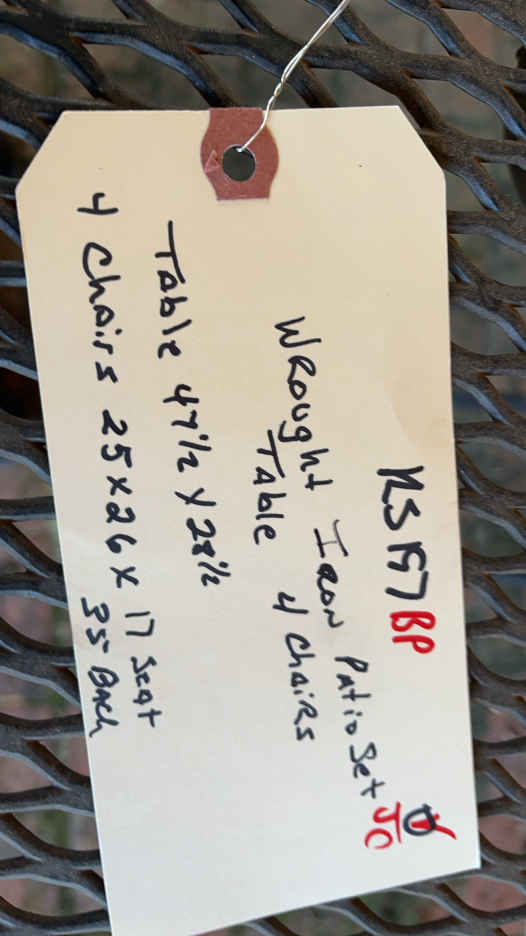 RS157 BP
Wrought Iron Patio Set
Table 4 Chairs
Table 47 1/2 X 28 1/2
4 Chairs 25 x 26 x 17 Seat
35 Back
JC